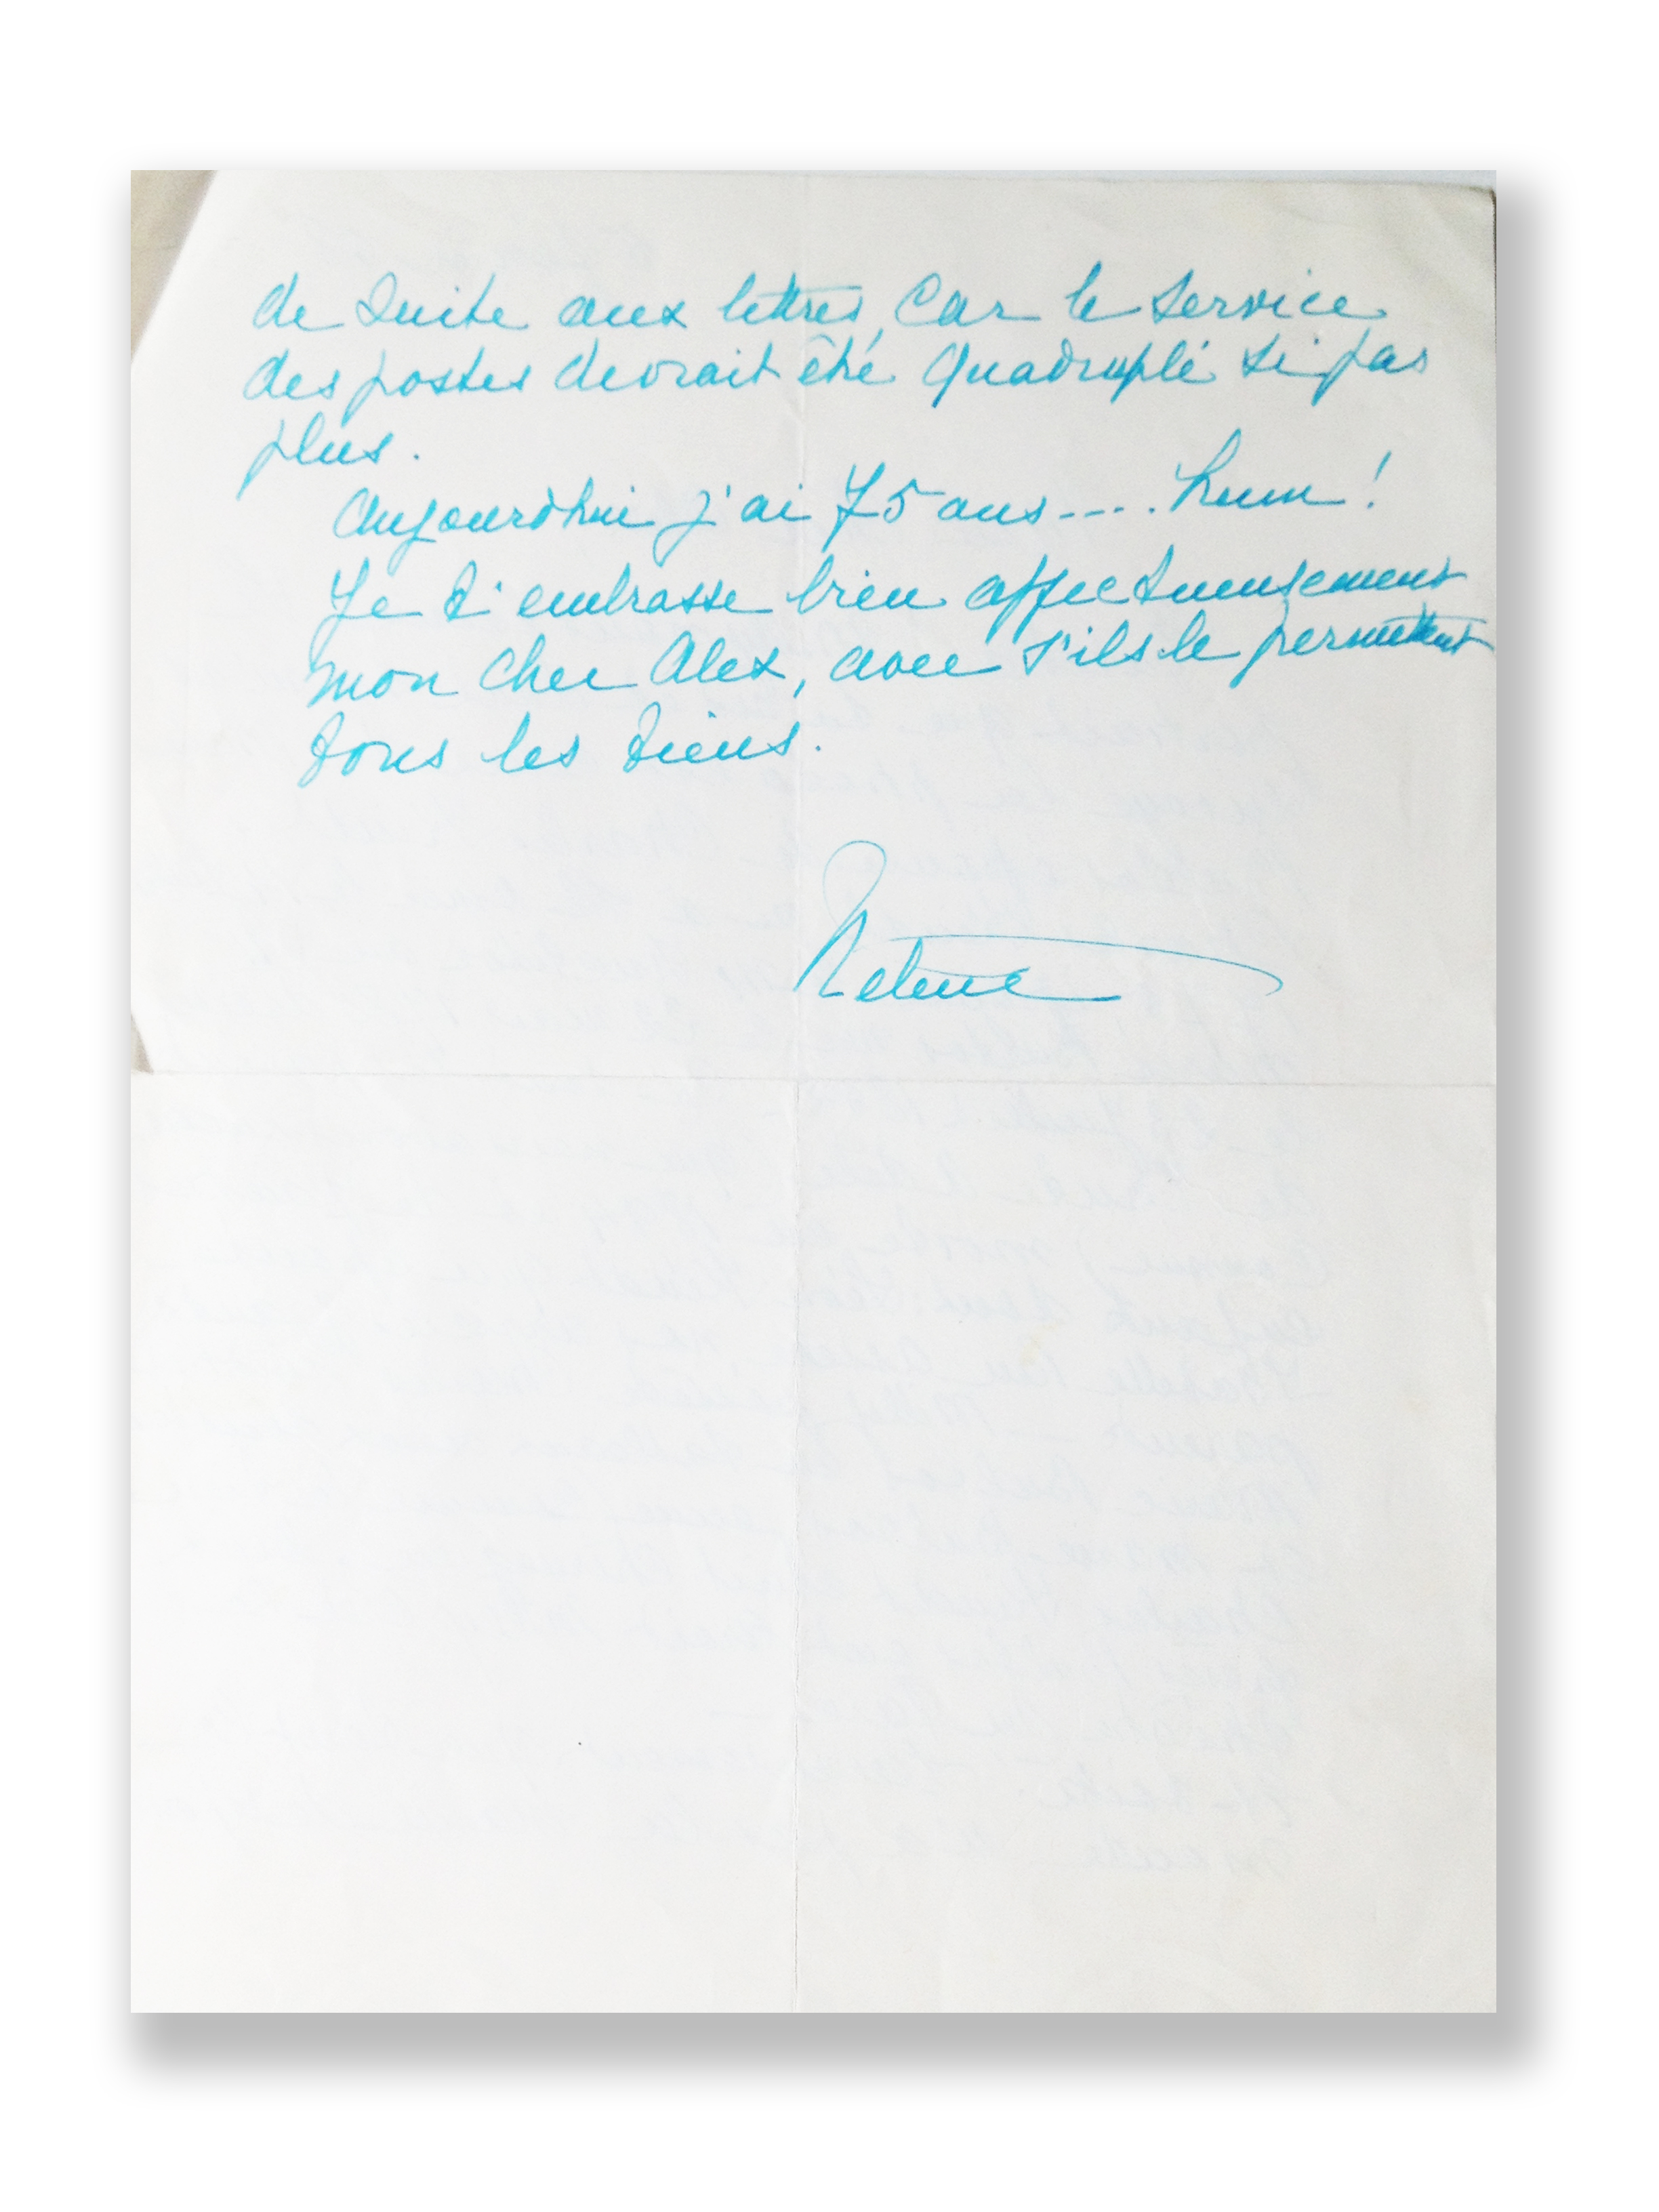 de suite aux lettres, car le service
des postes devrait été quadruplé si pas
plus.
Aujourdhui j'ai 75 ans----. hum !
Je t'embrasse bien affectueusement
mon cher Alex, avec s'ils le permettent
tous les tiens.